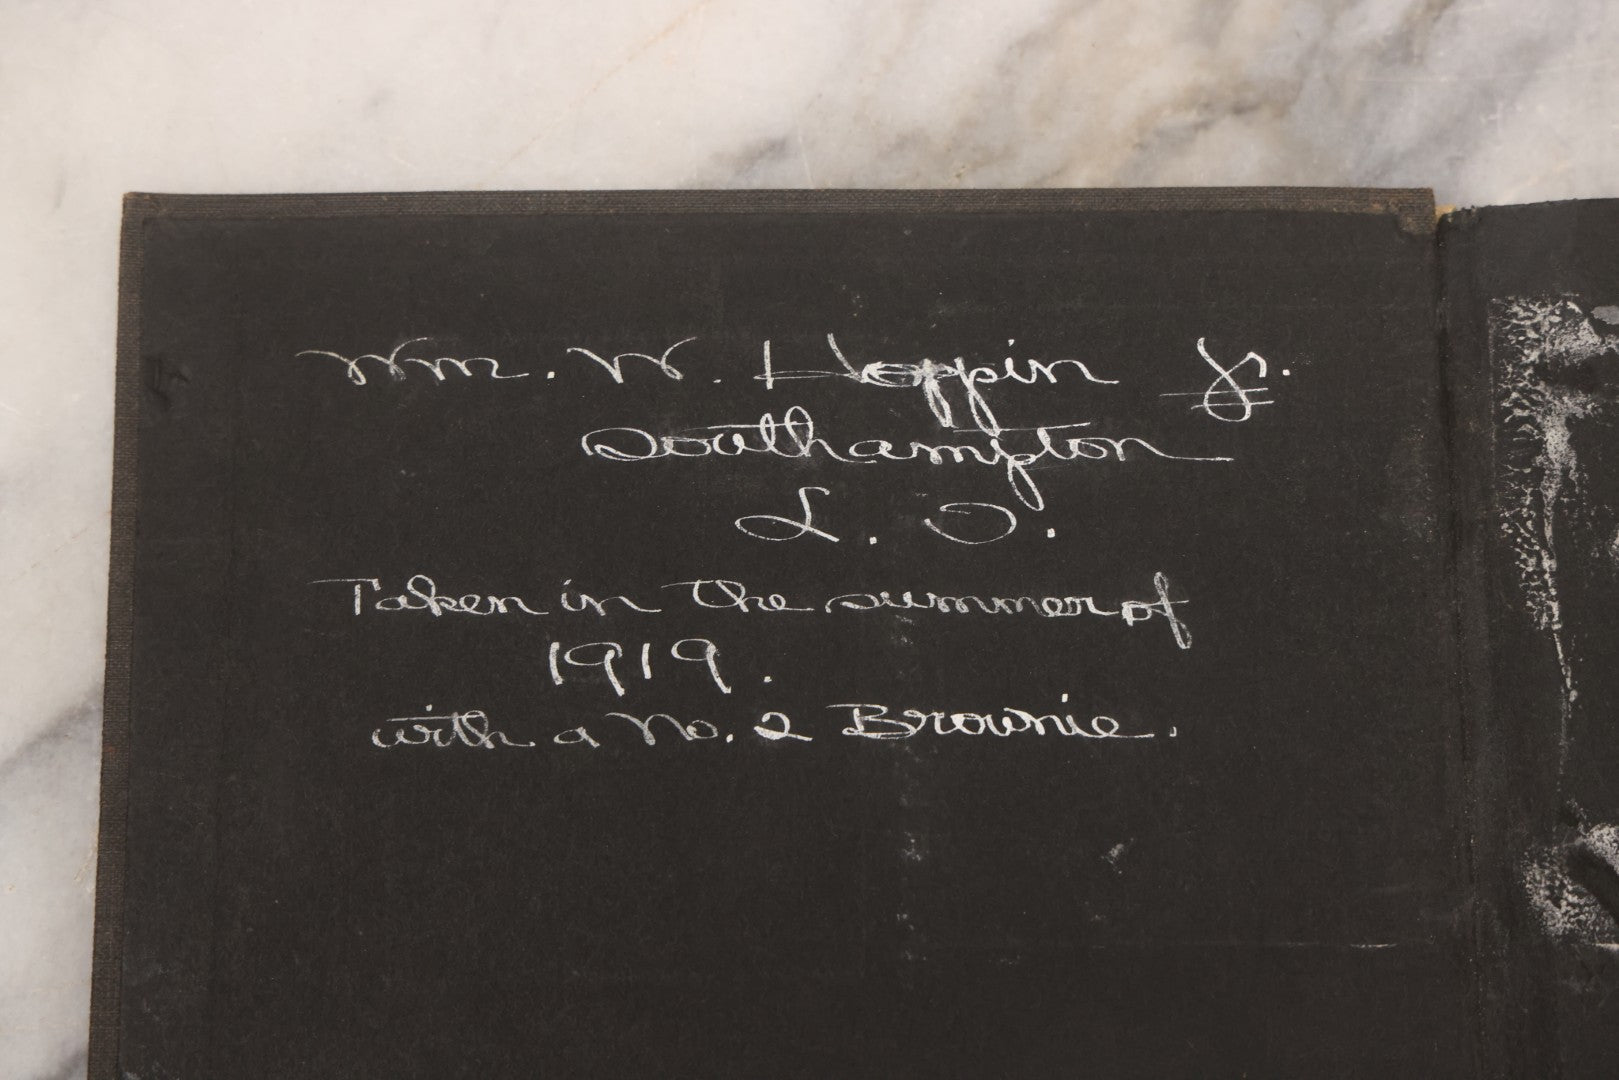 Wm. W. Hoppin Jr.
Southampton
L. I.
Taken in the summer of
1919.
with a No. 2 Brownie.